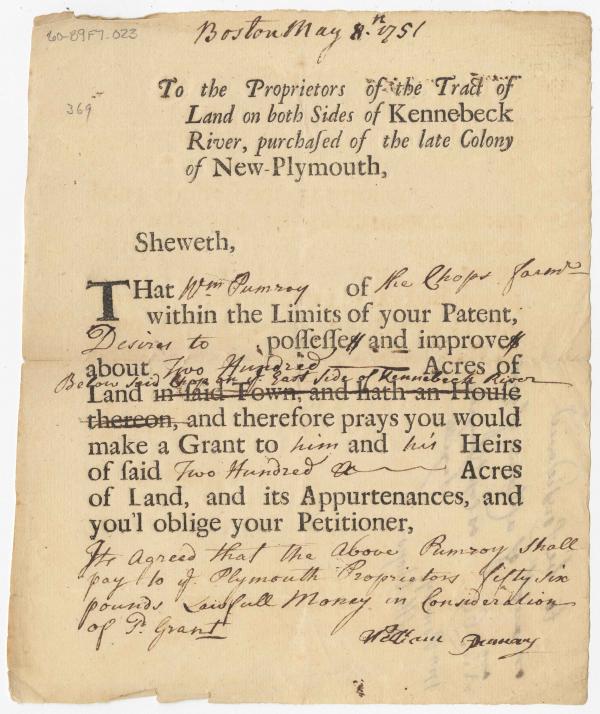 60-89F7.023
Boston May 8.th 1751
369
To the Proprietors of the Tract of
Land on both Sides of Kennebeck
River, purchaſed of the late Colony
of New-Plymouth,
Sheweth,
THat Wm Pumroy of the Chops farmr
within the Limits of your Patent,
Desires to poſſeſſes and improves
about Two Hundred Acres of
Below said Chops on ye East Side of Kennebeck River
Land in ſaid Town, and hath an Houſe
thereon, and therefore prays you would
make a Grant to him and his Heirs
of ſaid Two Hundred Acres
of Land, and its Appurtenances, and
you'l oblige your Petitioner,
Its Agreed that the Above Pumroy Shall
pay to ye Plymouth Proprietors fifty six
pounds Lawfull Money in Consideration
of sd. Grant
William